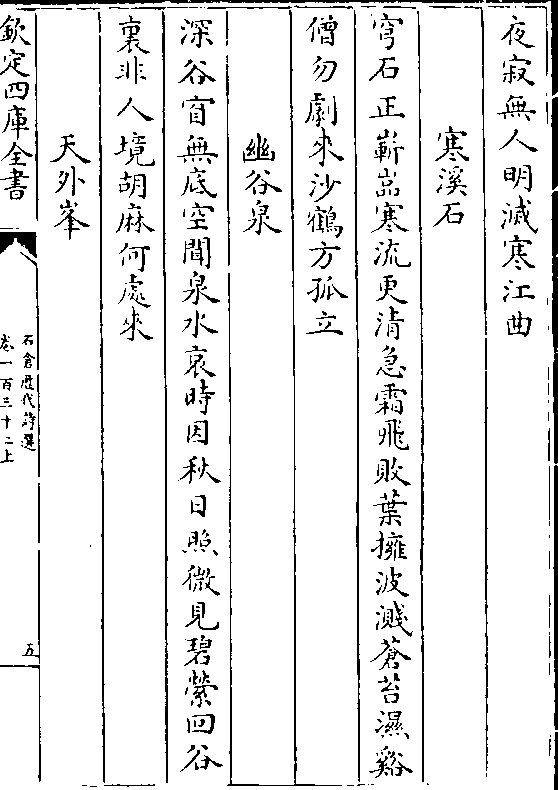 夜寂無人明滅寒江曲
寒溪石
穹石正嶄嵓寒流更清急霜飛敗葉擁波濺蒼苔濕谿
僧勿劇來沙鶴方孤立
幽谷泉
深谷窅無底空聞泉水哀時因秋日照微見碧縈回谷
裏非人境胡麻何處來
天外峯
欽定四庫全書
石倉歷代詩選
卷一百三十二上
五